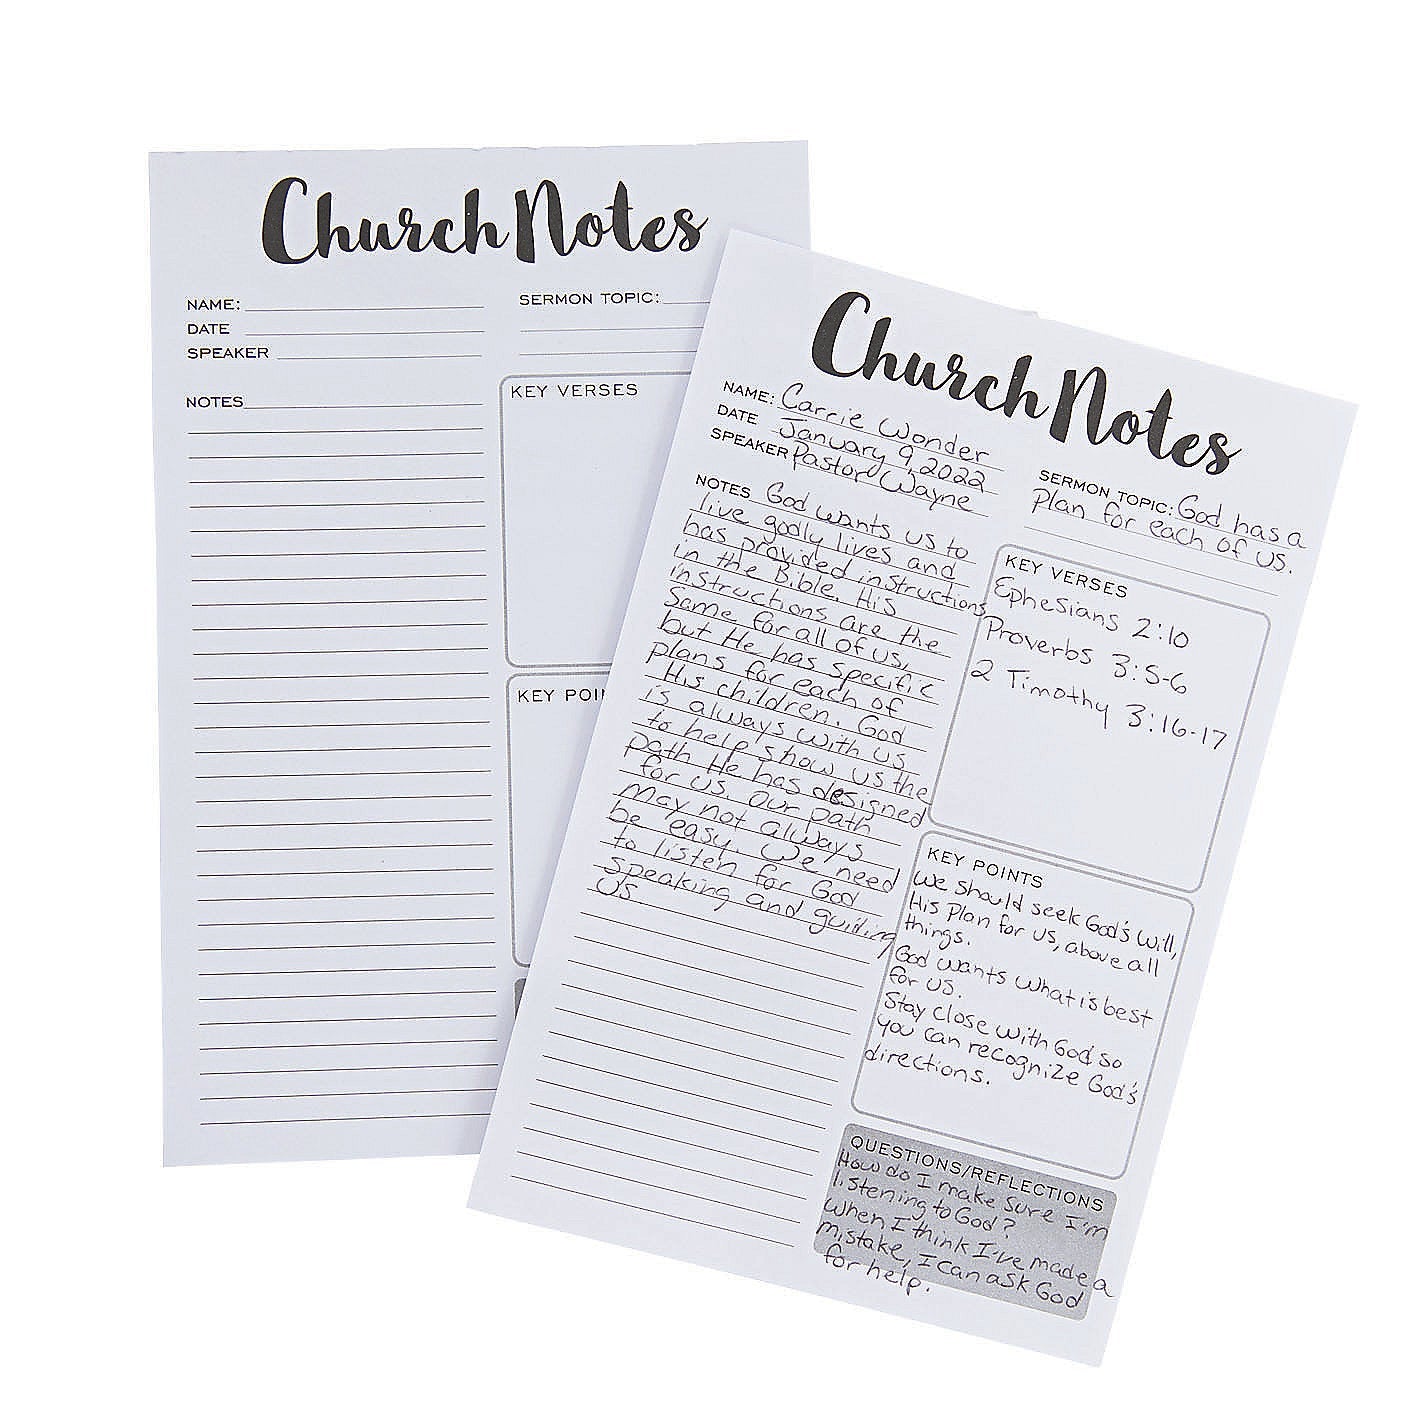 Church Notes
NAME:
SERMON TOPIC:
DATE
SPEAKER
NOTES
KEY VERSES
KEY POIN
Church Notes
NAME: Carrie Wonder
DATE January 9, 2022
SPEAKER Pastor Wayne
SERMON TOPIC: God has a
Plan for each of us.
NOTES God wants us to
live godly lives and
has provided instructions
in the Bible. His
instructions are the
Same for all of us,
but He has specific
plans for each of
His children. God
is always with us
to help show us the
path He has designed
for us. Our path
may not always
be easy. We need
to listen for God
speaking and guiding
us
KEY VERSES
Ephesians 2:10
Proverbs 3:5-6
2 Timothy 3:16-17
KEY POINTS
We should seek God's will,
His Plan for us, above all
things.
God wants what is best
for us.
Stay close with God so
you can recognize God's
directions.
QUESTIONS/REFLECTIONS
How do I make sure I'm
listening to God?
When I think I've made a
mistake, I can ask God
for help.